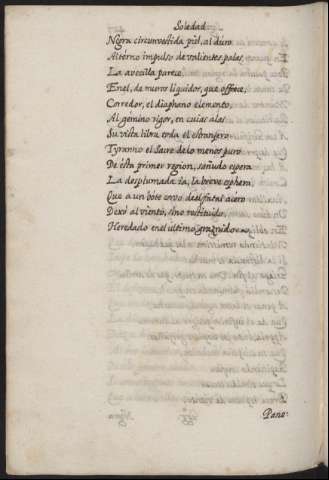 Soledad
Negra circunvestida piel, al duro
Alterno impulso de valientes palas,
La avecilla parece,
En el, de muros liquidos, que offrece,
Corredor, el diaphano elemento,
Al gémino rigor, en cuias alas
Su vista libra toda el estranjero.
Tyranno el Sacre de lo menos puro
De ésta primer region, sañudo espera
La desplumada ia, la breve esphera,
Que a un bote corvo del fatal acero
Dexó al viento, sino restituido,
Heredado en el ultimo graznido.
Pano-